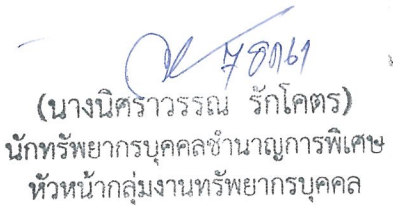 (นางนิศราวรรณ รักโคตร)
นักทรัพยากรบุคคลชำนาญการพิเศษ
หัวหน้ากลุ่มงานทรัพยากรบุคคล